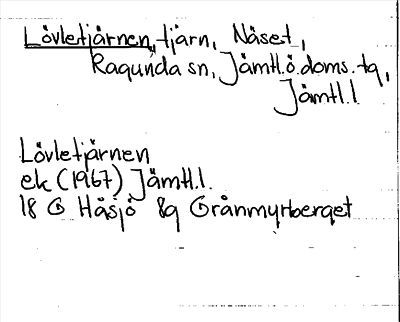 Lövletjärnen, tjärn, Näset,
Ragunda sn, Jämtl.ö.doms.tg,
Jämtl.l
Lövletjärnen
ek (1967) Jämtl.l.
18 G Håsjö 8g Grånmyrberget